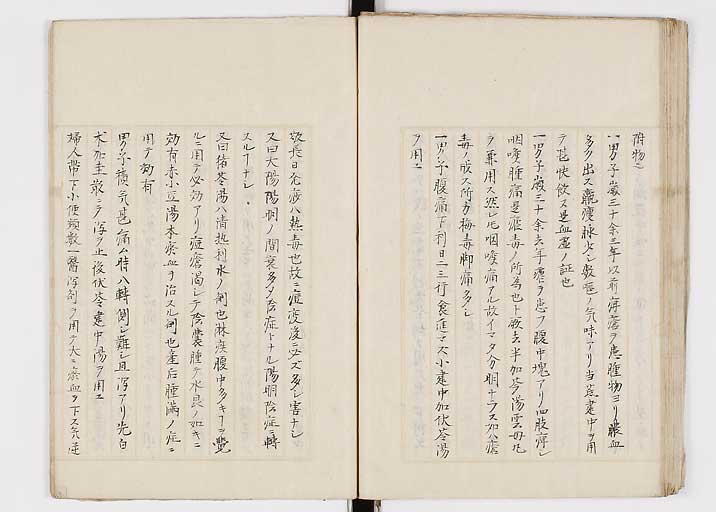 一男子歳三十余三年以前痔瘡ヲ患腫物ヨリ膿血
多ク出ス羸痩脉少シ数嘔ノ気味アリ当建中ヲ用
テ甚快飲又是血虚ノ証也
一男子歳三十余去年瘧ヲ患フ腹中塊アリ四肢痺シ
咽喉腫痛是瘀毒ノ所為也ト故去半加芩湯
ヲ兼用ス然レ𪜈咽喉痛アル故イマタ分明ナラス
毒ノ成ス所方梅毒脚痛多シ
一男子腹痛下利日二三行食進マス小建中加伏苓湯
ヲ用ユ
敬長曰疱瘡ハ熱毒也故ニ痘瘡後ニ必ズ多シ害ナシ
又曰太陽陽明ノ間衰多タ陰症トナル陽明陰症ニ轉
スルヿナシ
又曰猪苓湯ハ清熱利水ノ剤也淋疾腹中多キヿヲ覺
ルニ用テ必効アリ痘瘡渇シテ陰嚢腫テ水晶ノ如キニ
効有赤小豆湯本瘀血ヲ治スル剤也産后腫滿ノ症ニ
用テ効有
男子積気甚痛ム時ハ轉側シ難シ且瀉アリ先白
朮加圭散ニテ瀉ヲ止後伏苓建中湯ヲ用ユ
婦人帯下小便頻數一醫瀉剤ヲ用テ大ニ瘀血ヲ下ス気逆